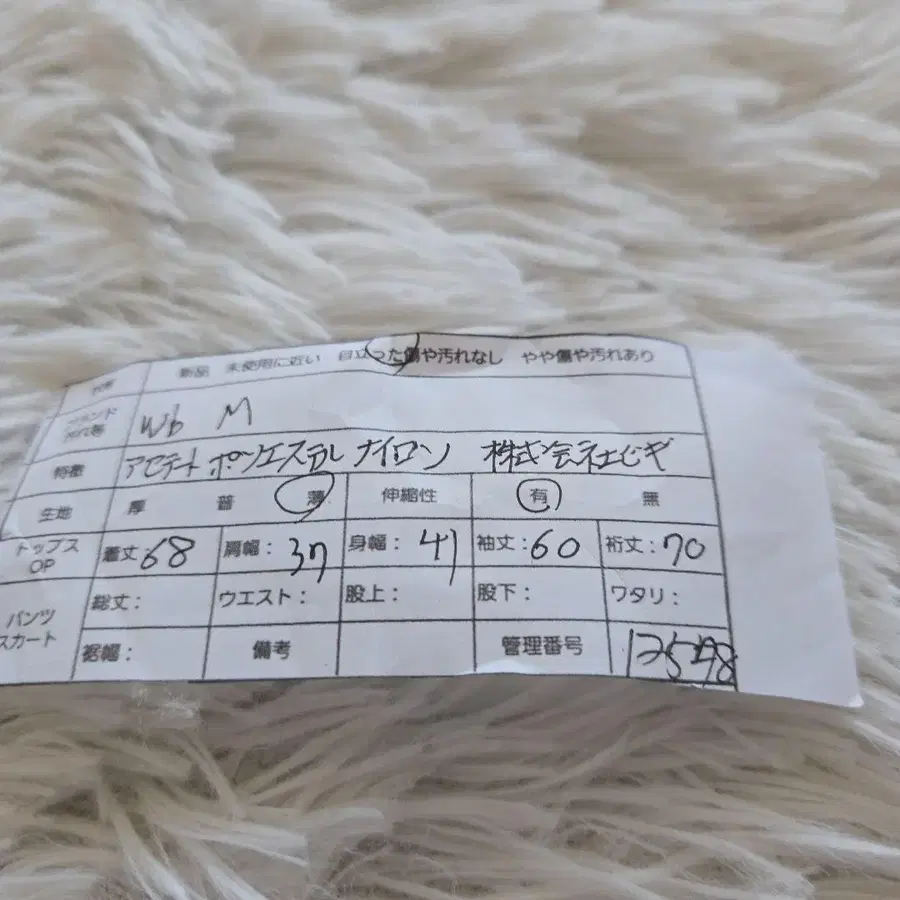 状態 新品 未使用に近い 目立った傷や汚れなし やや傷や汚れあり
ブランド 汚れ等 Wb M
特徴 アセテート ポリエステル ナイロン 株式会社ビギ
生地 厚 普 薄 伸縮性 有 無
トップス OP 着丈68 肩幅:37 身幅:41 袖丈:60 裄丈:70
パンツ スカート 総丈: ウエスト: 股上: 股下: ワタリ:
裾幅: 備考 管理番号 12598